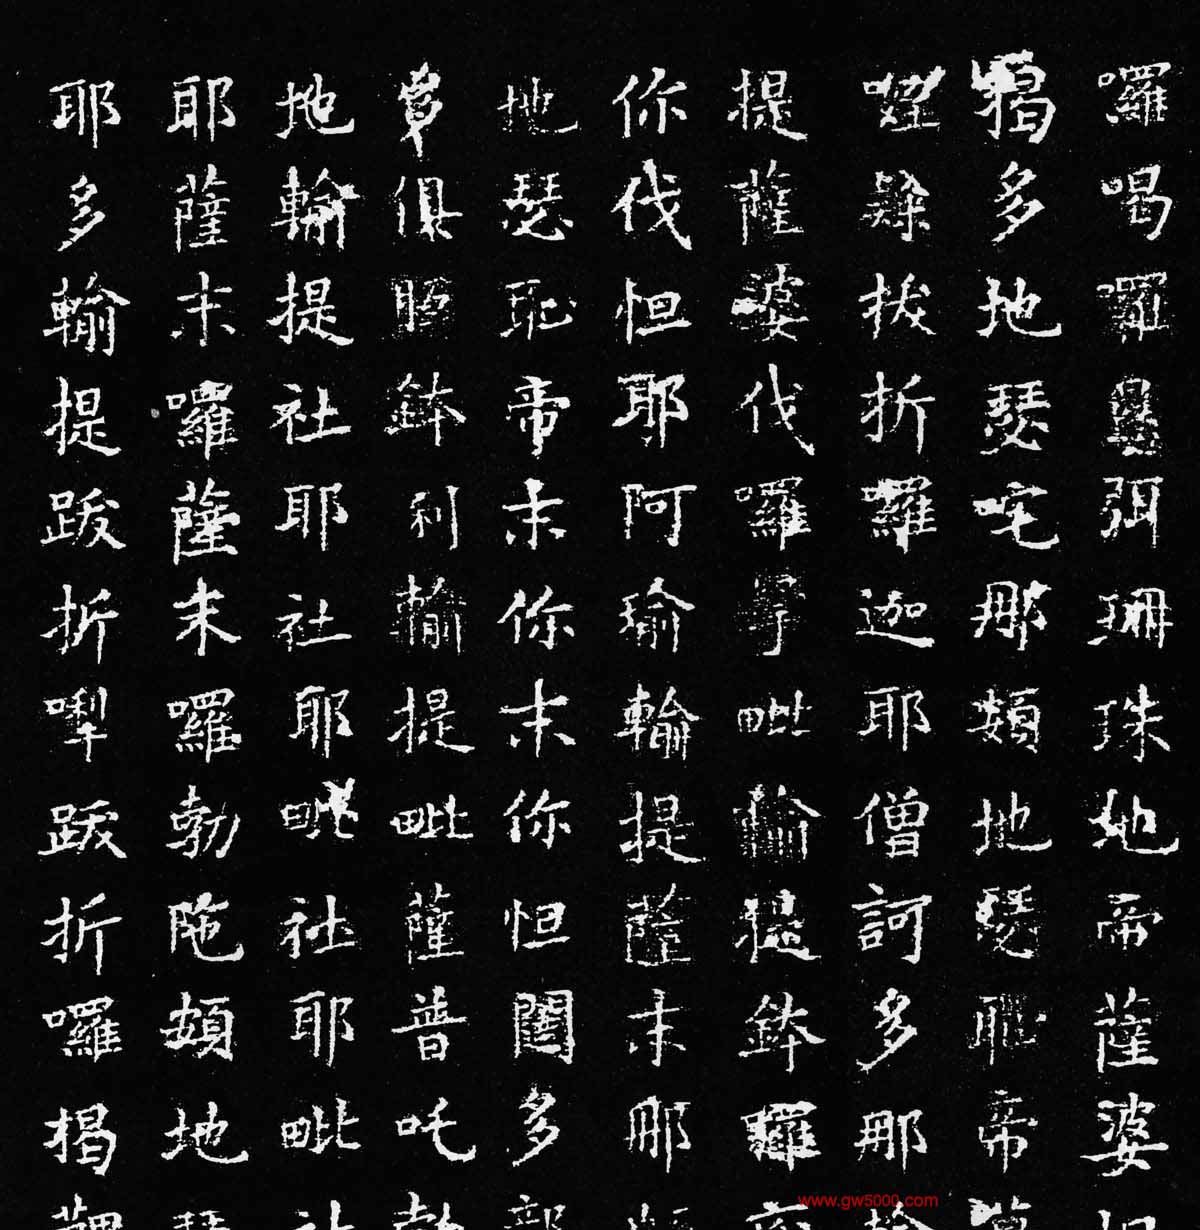 囉喝囉弭珊珠地帝薩婆
揭多地瑟咤那頞地瑟耻帝
拔折囉迦耶僧訶多那
提薩婆伐囉毗輸提鉢囉
你伐怛耶阿瑜輸提薩末那
地瑟耻帝末你末你怛闥多
俱胝鉢利輸提毗薩普吒
地輸提社耶社耶毗社耶毗
耶薩末囉薩末囉勃陁頞地
耶多輸提跋折跋折囉揭
www.gw5000.com